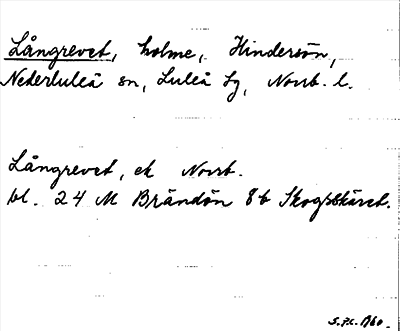 Långrevet, holme, Hindersön,
Nederluleå sn, Luleå tg, Norrb. l.
Långrevet, ek Norrb.
bl. 24 M Brändön 8b Skogsskäret.
S.Fr. 1960.